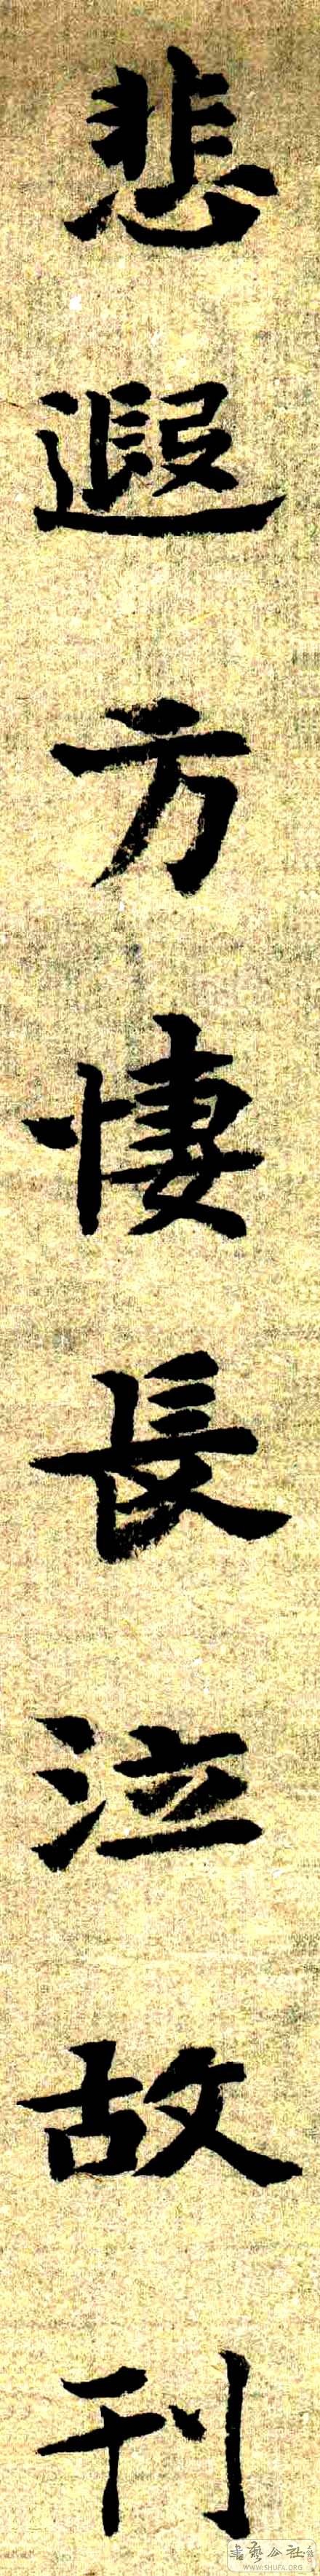 悲遐方悽長泣故刊
書藝公社
WWW.SHUFA.ORG